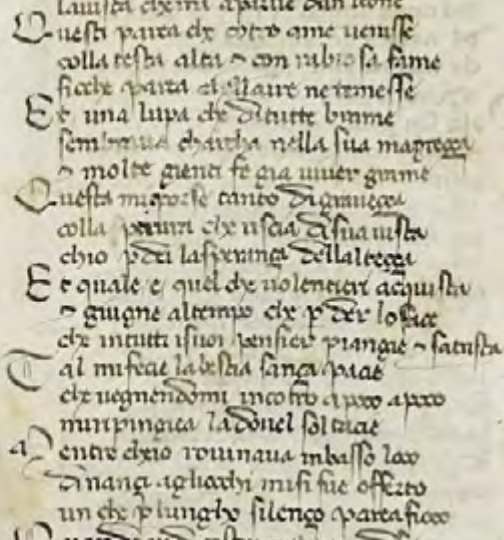 lauista che mi aparue dun leone
Questi parea che contro ame uenisse
colla testa alta ⁊ con rabiosa fame
sicche parea cellaire netemesse
Et una lupa che ditutte brame
sembraua charcha nella sua magreçça
⁊ molte gienti fe gia uiuer grame
Questa miporse tanto digraueçça
colla paura che uscia disua uista
chio pdei lasperança dellalteçça
Et quale e quel che uolentieri acquista
⁊ giugne altempo che pder lo face
che intutti isuoi pensier piangie ⁊ satrista
Tal mifecie labestia sança pace
che uegnendomi incontro apoco apoco
miripingiea ladouel sol tace
Mentre chio rouinaua inbasso loco
dinançi agliocchi misi fue offerto
un che plungho silenço parea fioco